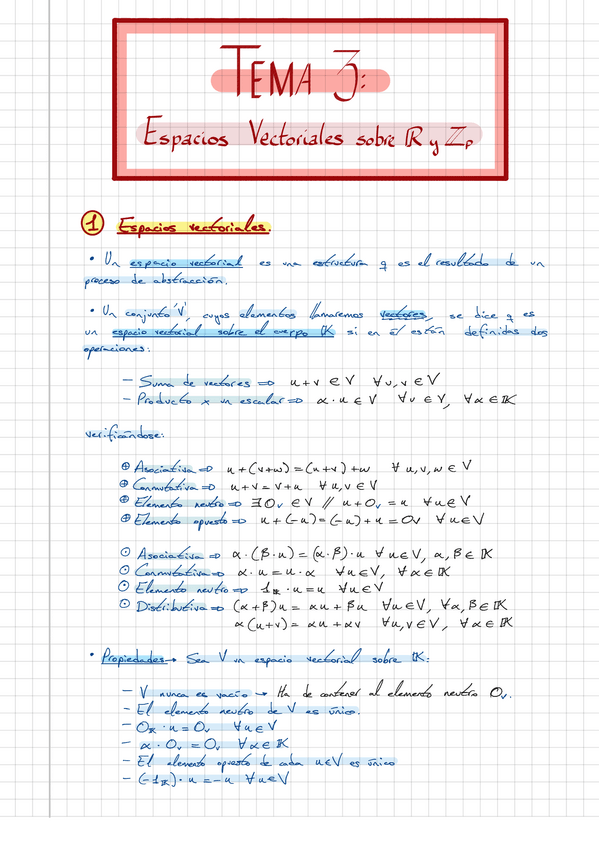 TEMA 3:
Espacios Vectoriales sobre ℝ y ℤp
1 Espacios vectoriales.
• Un espacio vectorial es una estructura q es el resultado de un
proceso de abstracción.
• Un conjunto 'V', cuyos elementos llamaremos vectores, se dice q es
un espacio vectorial sobre el cuerpo 𝕂 si en él están definidas dos
operaciones:
– Suma de vectores ⇒ u+v ∈ V ∀u,v ∈ V
– Producto x un escalar ⇒ α·u ∈ V ∀u ∈ V, ∀α ∈ 𝕂
verificándose:
⊕ Asociativa ⇒ u+(v+w)=(u+v)+w ∀u,v,w ∈ V
⊕ Conmutativa ⇒ u+v=v+u ∀u,v ∈ V
⊕ Elemento neutro ⇒ ∃0v ∈ V // u+0v=u ∀u∈V
⊕ Elemento opuesto ⇒ u+(-u)=(-u)+u=0v ∀u∈V
⊙ Asociativa ⇒ α·(β·u)=(α·β)·u ∀u∈V, α,β∈𝕂
⊙ Conmutativa ⇒ α·u=u·α ∀u∈V, ∀α∈𝕂
⊙ Elemento neutro ⇒ 1𝕂·u=u ∀u∈V
⊙ Distributiva ⇒ (α+β)u = αu+βu ∀u∈V, ∀α,β∈𝕂
α(u+v)= αu+αv ∀u,v∈V, ∀α∈𝕂
• Propiedades → Sea V un espacio vectorial sobre 𝕂:
– V nunca es vacío → Ha de contener al elemento neutro 0v.
– El elemento neutro de V es único.
– 0𝕂·u=0v ∀u∈V
– α·0v=0v ∀α∈𝕂
– El elemento opuesto de cada u∈V es único
– (-1𝕂)·u=-u ∀u∈V